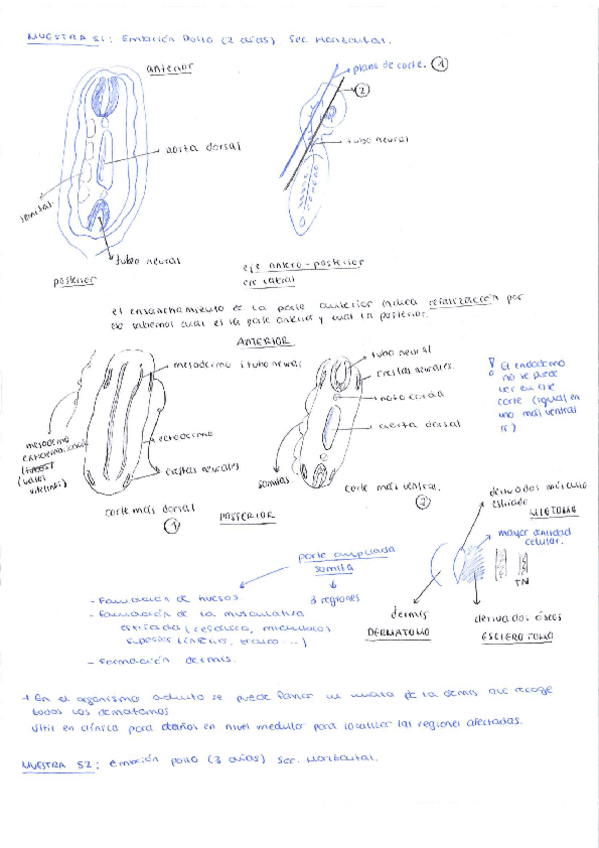 MUESTRA 51: Embrión Pollo (2 días) Sec Horizontal.
anterior
plano de corte. 1
2
aorta dorsal
tubo neural
somitas
tubo neural
posterior
eje antero-posterior
eje lateral
el ensanchamiento de la parte anterior indica cefalización por
eso sabemos cual es la parte anterior y cual la posterior.
ANTERIOR
mesodermo
tubo neural
tubo neural
crestas neurales.
notocorda
aorta dorsal
El endodermo
no se puede
ver en este
corte (igual en
uno más ventral
sí)
mesodermo
extraembrionario
(vasos
vitelinos)
ectodermo
crestas neurales
somitas
corte más dorsal
1
corte más ventral.
2
POSTERIOR
derivados músculo
estriado
MIOTOMO
mayor cantidad
celular.
TN
parte ampliada
somita
- Formación de huesos
3 regiones
- Formación de la musculatura
estriada
- Formación dermis.
dermis
DERMATOMO
derivados óseos
ESCLEROTOMO
+ En el organismo adulto se puede la dermis que recoge
todos los dermatomos
Útil en clínica para daños en nivel medular para localizar las regiones afectadas.
MUESTRA 52: Embrión pollo (3 días) Sec. Horizontal.